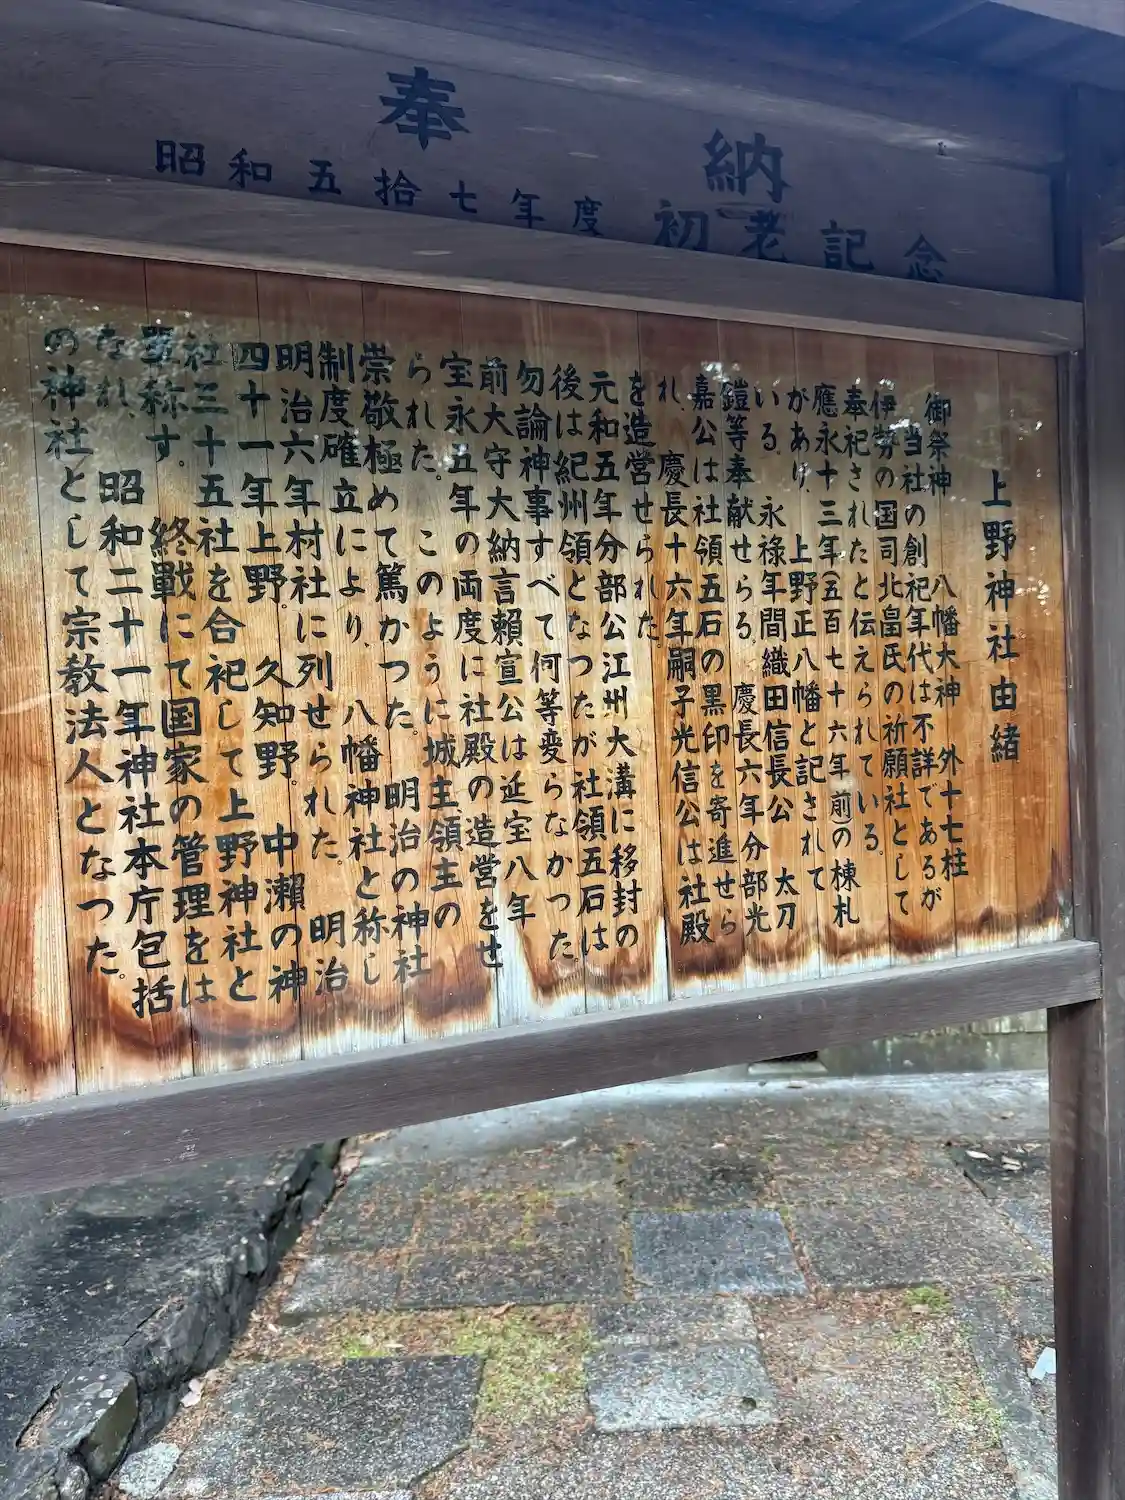 奉納
昭和五拾七年度 初老記念
上野神社由緒
御祭神 八幡大神 外十七柱
当社の創祀年代は不詳であるが
伊勢の国司北畠氏の祈願社として
奉祀されたと伝えられている。
應永十三年(五百七十六年前)の棟札
があり、上野正八幡と記されて
いる。永禄年間織田信長公 太刀
鎧等奉献せらる。慶長六年分部光
嘉公は社領五石の黒印を寄進せら
れ、慶長十六年嗣子光信公は社殿
を造営せられた。
元和五年分部公江州大溝に移封の
後は紀州領となつたが社領五石は
勿論神事すべて何等変らなかつた
前大守大納言頼宣公は延宝八年
宝永五年の両度に社殿の造営をせ
られた。このように城主領主の
崇敬極めて篤かつた。明治の神社
制度確立により、八幡神社と称し
明治六年村社に列せられた。明治
四十一年上野。久知野。中瀬の神
社三十五社を合祀して上野神社と
単称す。終戰にて国家の管理をは
なれ、昭和二十一年神社本庁包括
の神社として宗教法人となつた。